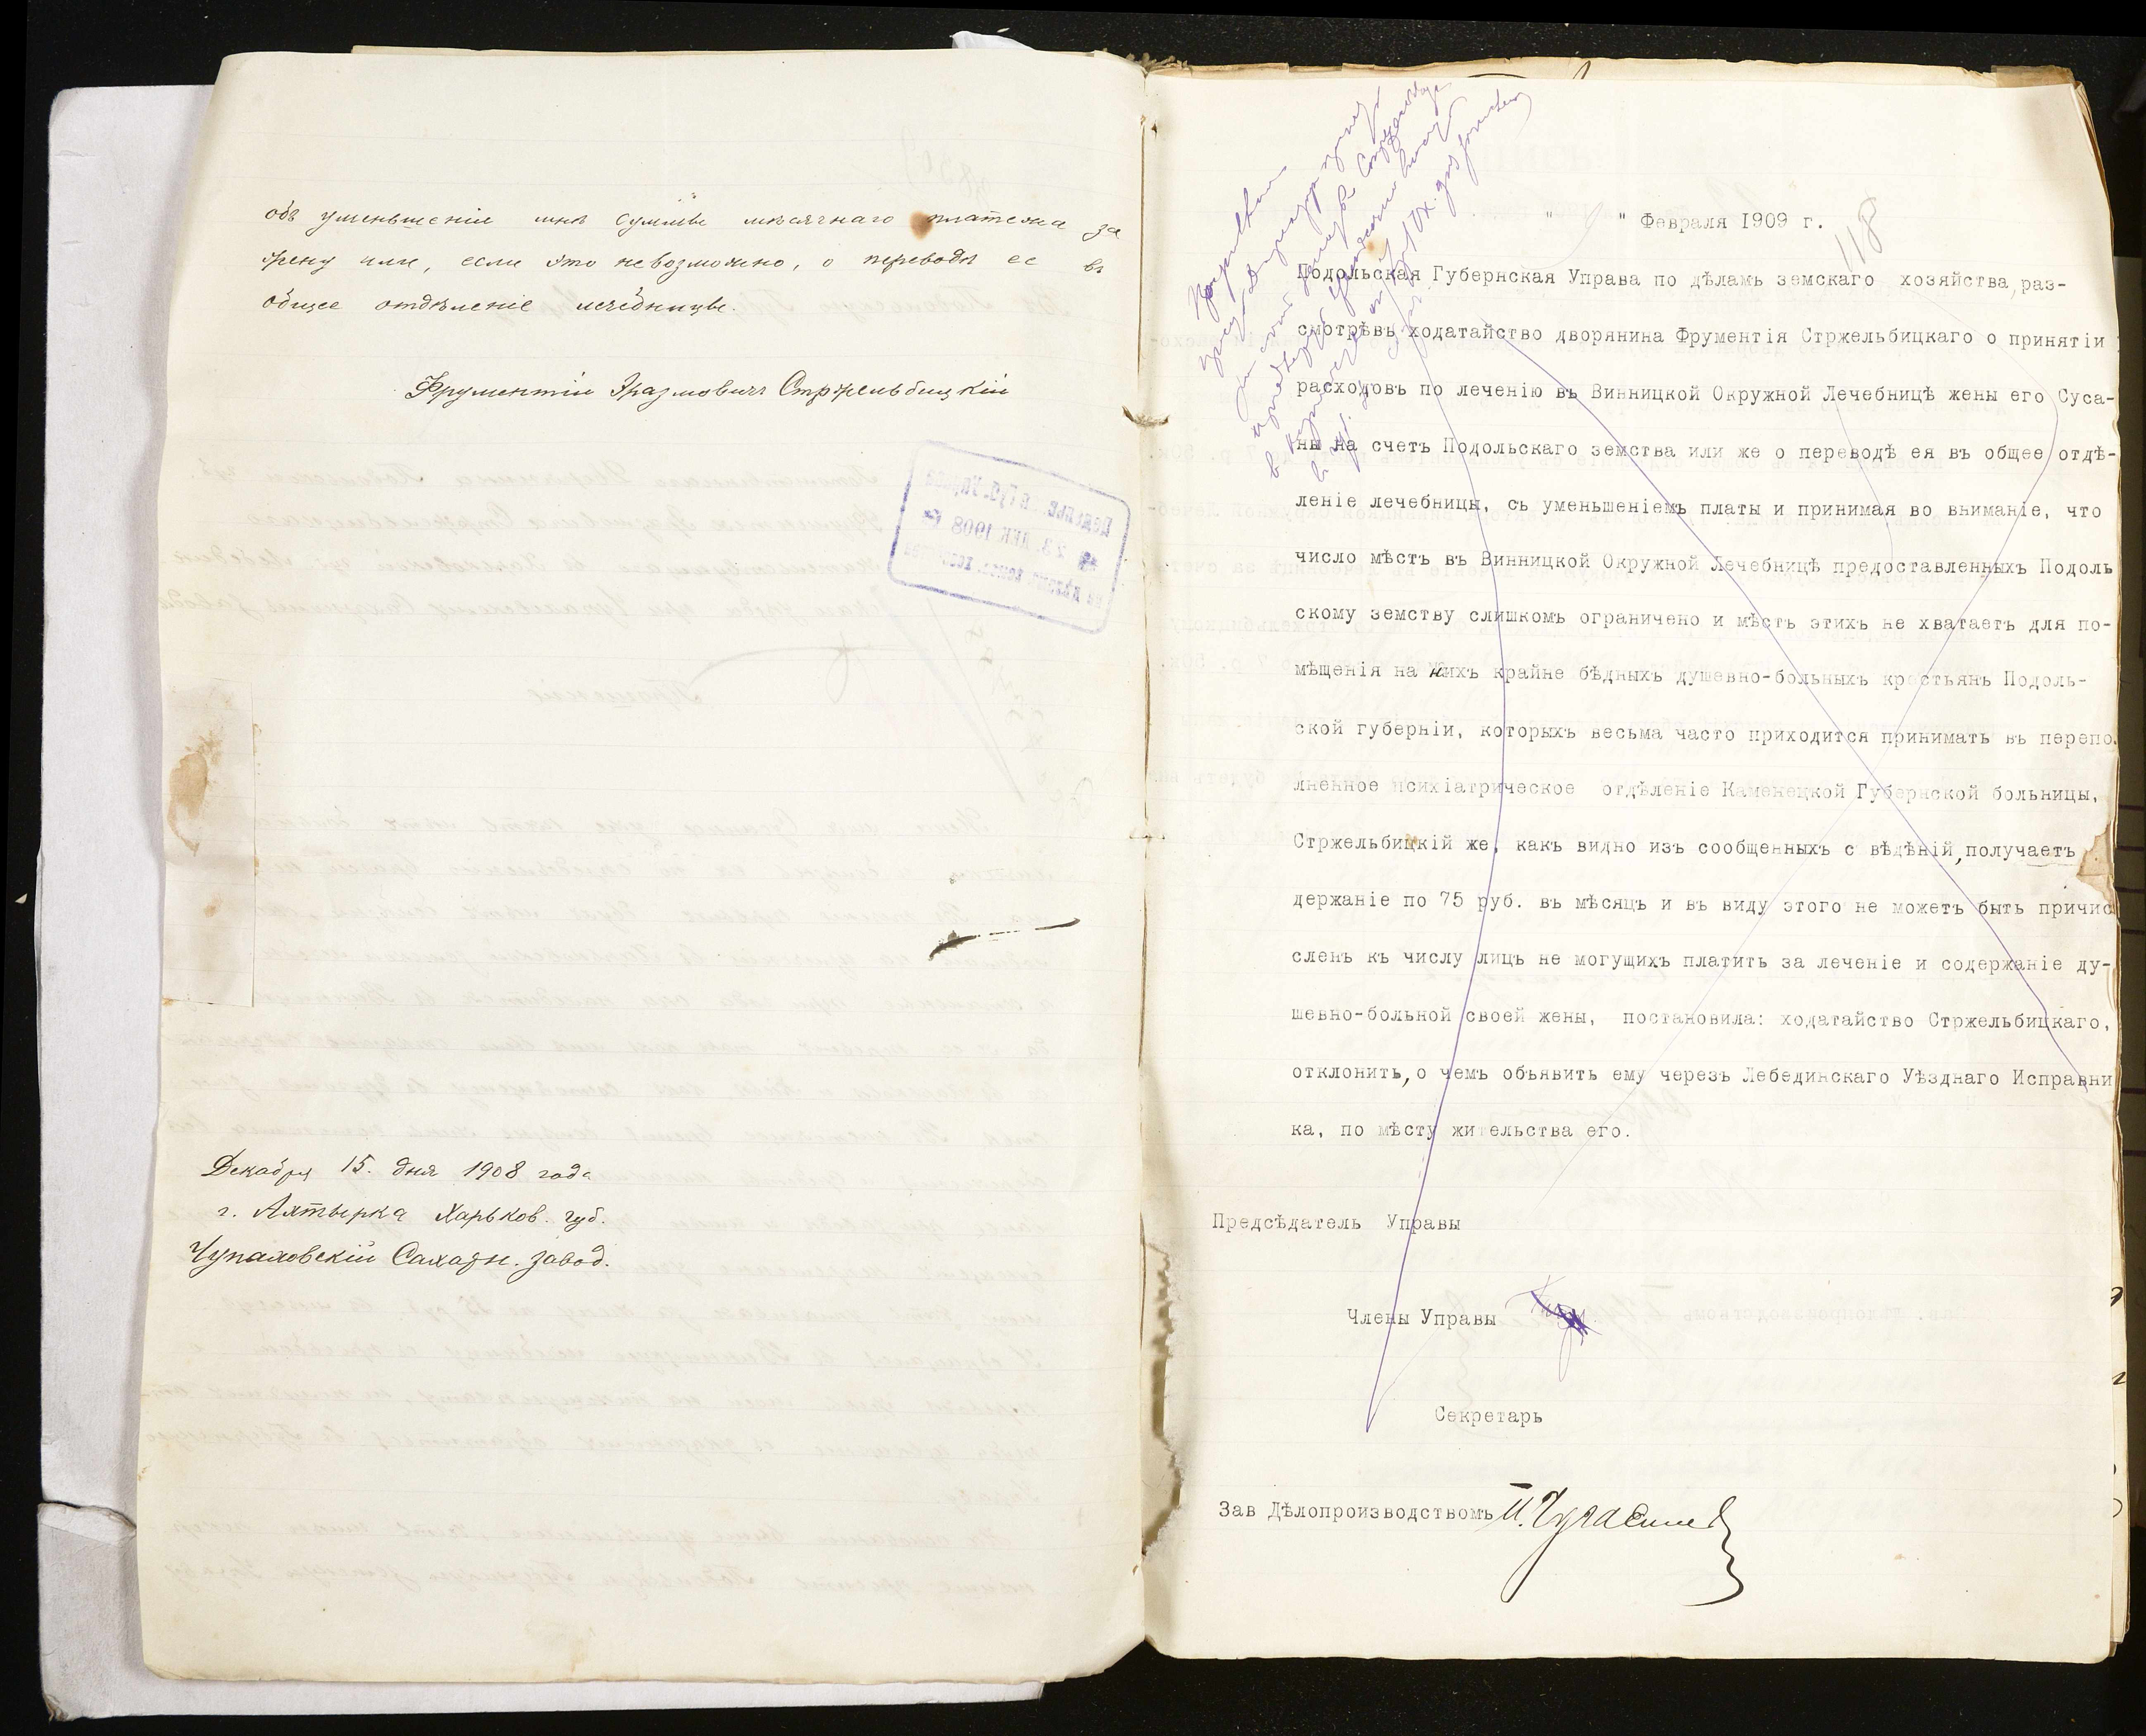 объ уменьшеніи мнѣ суммы мѣсячнаго платежа за
жену или, если это невозможно, о переводѣ ее въ
общее отдѣленіе лечебницы.
Фрументій Эразмовичъ Стржельбицкій
Декабря 15. дня 1908 года
г. Ахтырка Харьков. губ.
Чупаховскій Сахарн. завод.
118
" " Февраля 1909 г.
Подольская Губернская Управа по дѣламъ земскаго хозяйства, раз-
смотрѣвъ ходатайство дворянина Фрументія Стржельбицкаго о принятіи
расходовъ по леченію въ Винницкой Окружной Лечебницѣ жены его Суса-
ны на счетъ Подольскаго земства или же о переводѣ ея въ общее отдѣ-
леніе лечебницы, съ уменьшеніемъ платы и принимая во вниманіе, что
число мѣстъ въ Винницкой Окружной Лечебницѣ предоставленныхъ Подоль
скому земству слишкомъ ограничено и мѣстъ этихъ не хватаетъ для по-
мѣщенія на нихъ крайне бѣдныхъ душевно-больныхъ крестьянъ Подоль-
ской губерніи, которыхъ весьма часто приходится принимать въ перепо
лненное психіатрическое отдѣленіе Каменецкой Губернской больницы,
Стржельбицкій же, какъ видно изъ сообщенныхъ с вѣдѣній, получаетъ
держаніе по 75 руб. въ мѣсяцъ и въ виду этого не можетъ быть причис
сленъ къ числу лицъ не могущихъ платить за леченіе и содержаніе ду-
шевно-больной своей жены, постановила: ходатайство Стржельбицкаго,
отклонить, о чемъ объявить ему черезъ Лебединскаго Уѣзднаго Исправни
ка, по мѣсту жительства его.
Предсѣдатель Управы
Члены Управы
Секретарь
Зав Дѣлопроизводствомъ